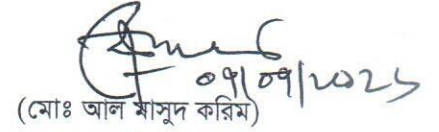 ০৭/০৭/২০২৫
(মোঃ আল মাসুদ করিম)